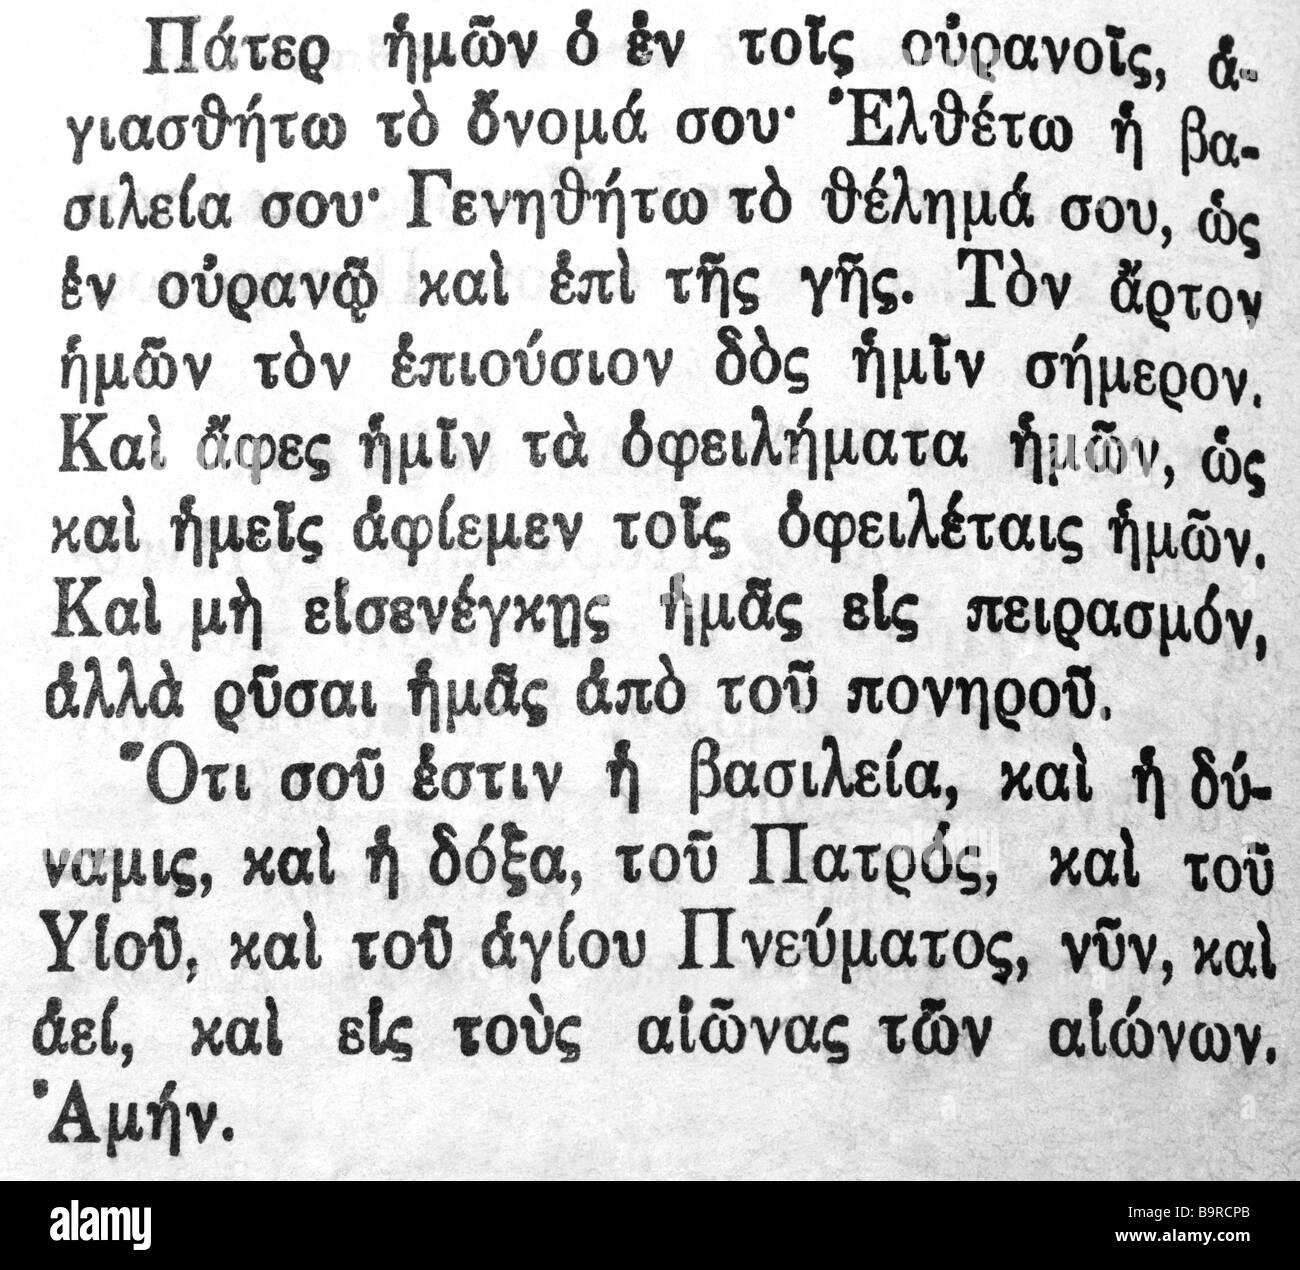 Πάτερ ἡμῶν ὁ ἐν τοῖς οὐρανοῖς, ἁ-
γιασθήτω τὸ ὄνομά σου· Ἐλθέτω ἡ βα-
σιλεία σου· Γενηθήτω τὸ θέλημά σου, ὡς
ἐν οὐρανῷ καὶ ἐπὶ τῆς γῆς. Τὸν ἄρτον
ἡμῶν τὸν ἐπιούσιον δὸς ἡμῖν σήμερον.
Καὶ ἄφες ἡμῖν τὰ ὀφειλήματα ἡμῶν, ὡς
καὶ ἡμεῖς ἀφίεμεν τοῖς ὀφειλέταις ἡμῶν.
Καὶ μὴ εἰσενέγκῃς ἡμᾶς εἰς πειρασμόν,
ἀλλὰ ρῦσαι ἡμᾶς ἀπὸ τοῦ πονηροῦ.
Ὅτι σοῦ ἐστιν ἡ βασιλεία, καὶ ἡ δύ-
ναμις, καὶ ἡ δόξα, τοῦ Πατρός, καὶ τοῦ
Υἱοῦ, καὶ τοῦ ἁγίου Πνεύματος, νῦν, καὶ
ἀεί, καὶ εἰς τοὺς αἰῶνας τῶν αἰώνων.
Ἀμήν.
alamy
Image ID: B9RCPB
www.alamy.com